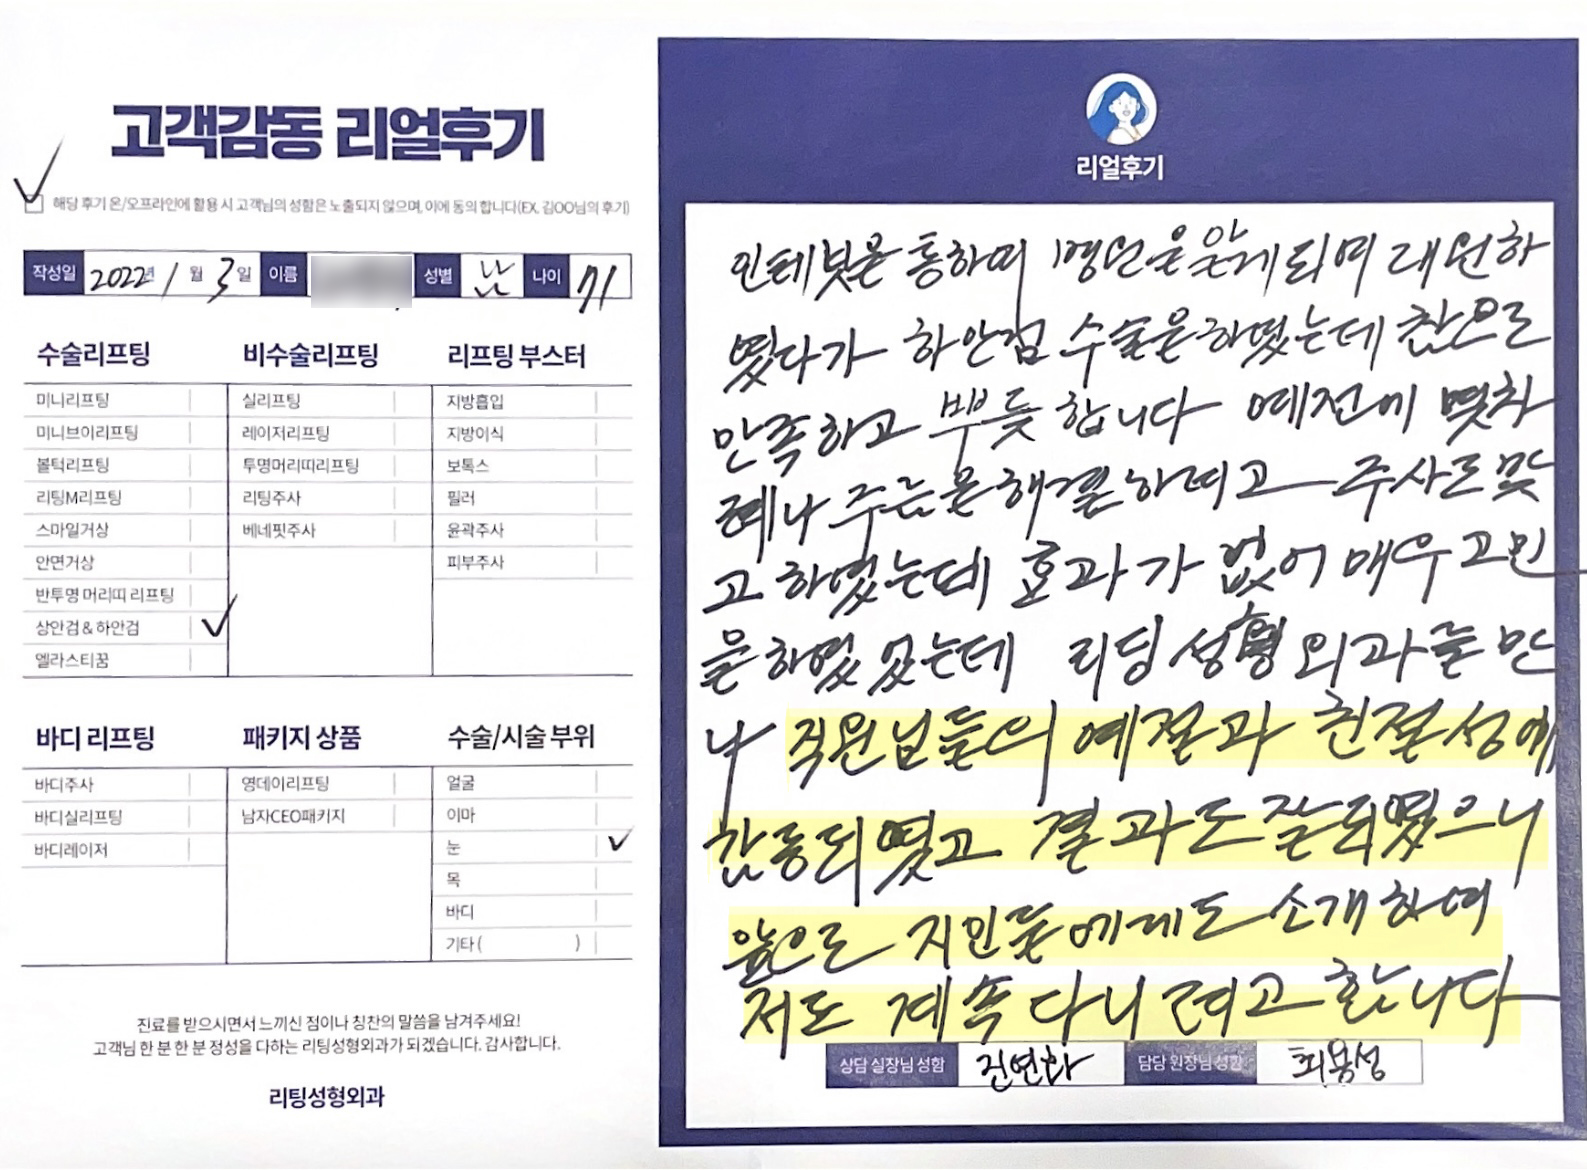 고객감동 리얼후기
해당 후기 온/오프라인에 활용 시 고객님의 성함은 노출되지 않으며, 이에 동의 합니다(EX, 김OO님의 후기)
작성일 2022년 1월 3일 이름 성별 남 나이 71
수술리프팅
미니리프팅
미니브이리프팅
볼턱리프팅
리팅M리프팅
스마일거상
안면거상
반투명 머리띠 리프팅
상안검 & 하안검
엘라스티꿈
비수술리프팅
실리프팅
레이저리프팅
투명머리띠리프팅
리팅주사
베네핏주사
리프팅 부스터
지방흡입
지방이식
보톡스
필러
윤곽주사
피부주사
바디 리프팅
바디주사
바디실리프팅
바디레이저
패키지 상품
영데이리프팅
남자CEO패키지
수술/시술 부위
얼굴
이마
눈
목
바디
기타 ( )
진료를 받으시면서 느끼신 점이나 칭찬의 말씀을 남겨주세요!
고객님 한 분 한 분 정성을 다하는 리팅성형외과가 되겠습니다. 감사합니다.
리팅성형외과
리얼후기
인테넷을 통하여 병원을 알게되며 내원하
였다가 하안검 수술을 하였는데 참으로
만족하고 뿌듯 합니다 예전에 몇차
례나 주름을 해결하려고 주사도 맞
고 하였는데 효과가 없어 매우 고민
을 하였었는데 리팅 성형외과를 만
나 직원님들의 예절과 친절성에
감동되였고 결과도 잘되였으니
앞으로 지인들에게도 소개하여
저도 계속 다니려고 합니다
상담 실장님 성함 진연화 담당 원장님 성함 최봉성